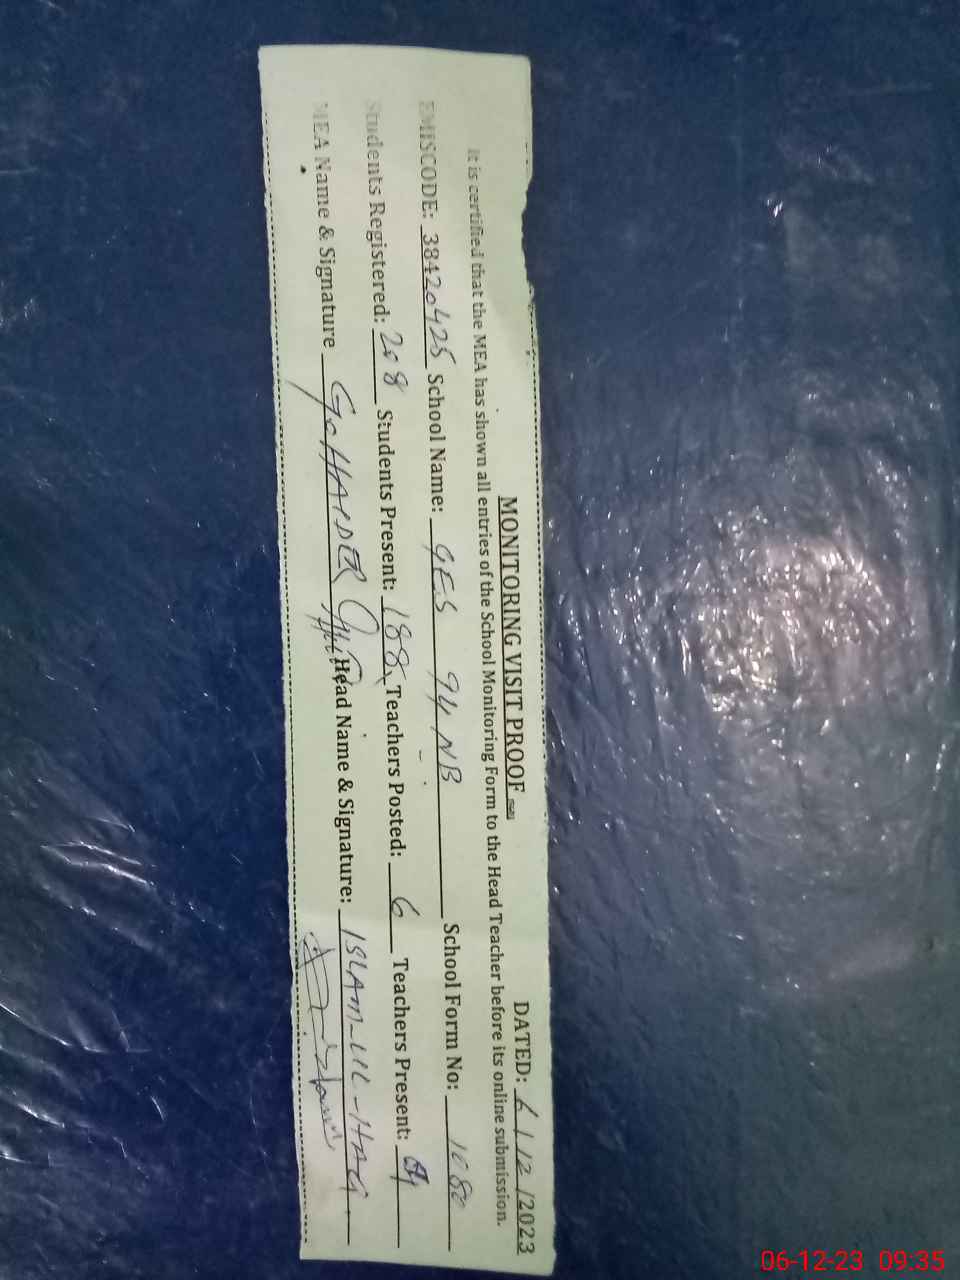 MONITORING VISIT PROOF
DATED: 6/12/2023
It is certified that the MEA has shown all entries of the School Monitoring Form to the Head Teacher before its online submission.
EMISCODE: 38420425 School Name: GES 94 NB School Form No: 1080
Students Registered: 208 Students Present: 188 Teachers Posted: 6 Teachers Present:
MEA Name & Signature G. HAIDER Head Name & Signature: ISLAM-UL-HAQ
06-12-23 09:35